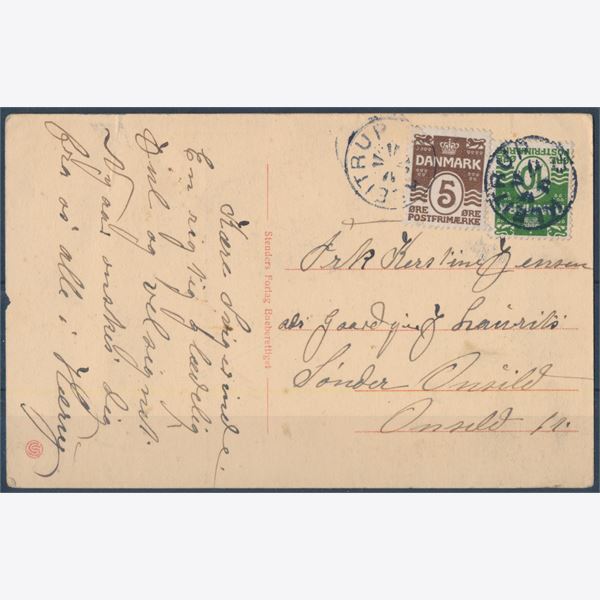 Kære Svigerinde.
En rigtig glædelig
Jul og velsignet
Nytaar ønskes Dig
fra os alle i
Stenders Forlag Eneberettiget
DANMARK
5
ØRE ØRE
POSTFRIMÆRKE
10
ØRE
POSTFRIMÆRKE
EJTRUP
Frk Kerstine Jensen
adr Laurits
Sønder Onsild
Onsild St.